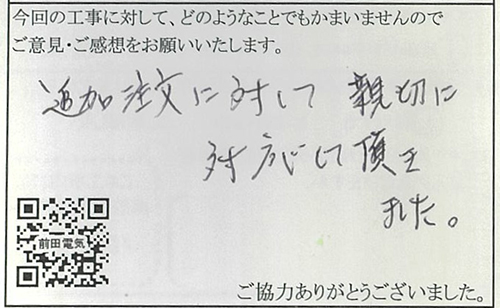 今回の工事に対して、どのようなことでもかまいませんので
ご意見・ご感想をお願いいたします。
追加注文に対して 親切に
対応して頂き
ました。
前田電気
ご協力ありがとうございました。